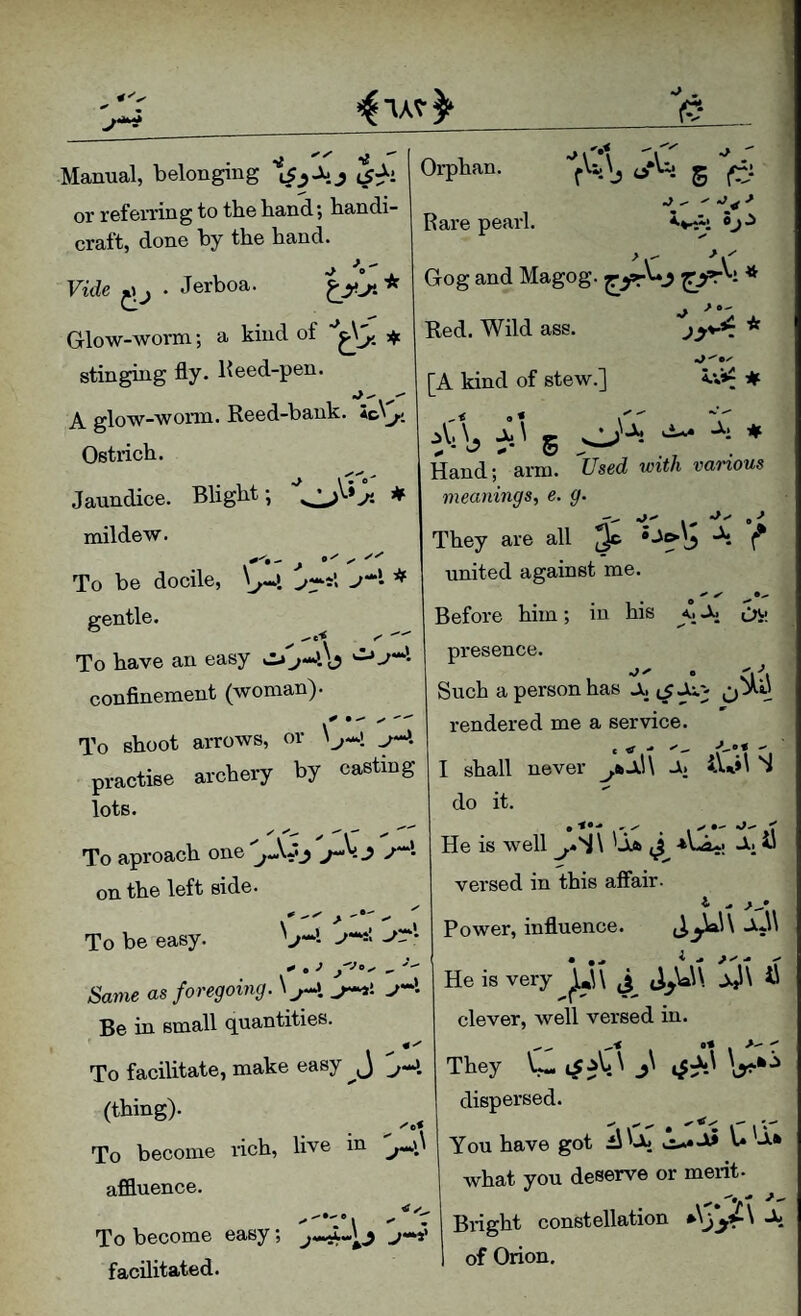 يتم
يسر
Orphan. يتم ج يتامى وأيتام
Rare pearl. درّة يتيمة
Gog and Magog. يأجوج ومأجوج *
Red. Wild ass. يحمور *
[A kind of stew.] يخنة *
* يد ويد ويدّ ج أيد وأياد
Hand; arm. Used with various
meanings, e. g.
They are all هم يد واحدة عليّ
united against me.
Before him; in his بين يديه
presence.
Such a person has لفلان عندي يد
rendered me a service.
I shall never لا أفعله يد الدهر
do it.
He is well لك يد بيضاء في هذا الأمر
versed in this affair.
Power, influence. اليد الطولى
He is very له اليد الطولى في العلم
clever, well versed in.
They ذهبوا أيدي أو أيادي سبا
dispersed.
You have got هذا ما قدّمت يداك
what you deserve or merit.
Bright constellation يد الجوزاء
of Orion.
Manual, belonging يديّ ويدويّ
or referring to the hand; handi-
craft, done by the hand.
Vide . Jerboa. يربوع *
Glow-worm; a kind of يراع *
stinging fly. Reed-pen.
A glow-worm. Reed-bank. يراعة
Ostrich.
Jaundice. Blight; يرقان *
mildew.
To be docile, يسر ييسر يسرا *
gentle.
To have an easy يسرت وأيسرت
confinement (woman).
To shoot arrows, or يسر يسرا
practise archery by casting
lots.
To aproach one يسر وياسر وتياسر
on the left side.
To be easy. يسر ييسر يسرا
Same as foregoing. يسر ييسر يسرا
Be in small quantities.
To facilitate, make easy يسّر ل
(thing).
To become rich, live in أيسر
affluence.
To become easy; تيسّر واستيسر
facilitated.